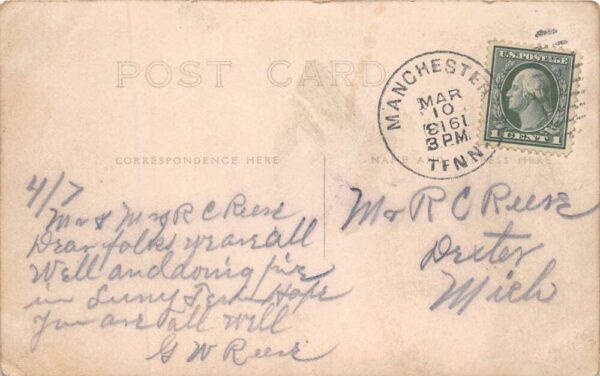 POST CARD
MANCHESTER
MAR
10
3 PM
1916
TENN.
U.S. POSTAGE
1 CENT 1
CORRESPONDENCE HERE
NAME AND ADDRESS HERE
4/7
Mr & Mrs R C Reese
Dear folks we are all
Well and doing fine
in Suny Tenn Hope
You are all well
G W Reese
Mr R C Reese
Dexter
Mich